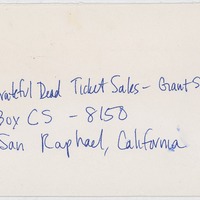 rateful Dead Ticket Sales - Grant S
Box CS - 8150
San Raphael, California